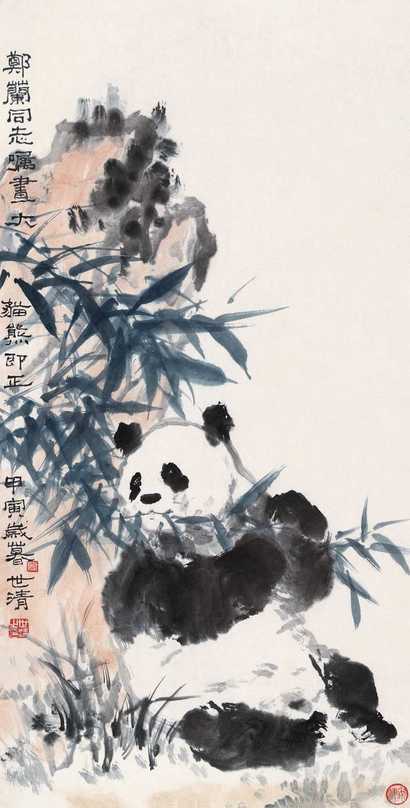 鄭蘭同志囑畫大
貓熊即正
甲寅歲暮世清